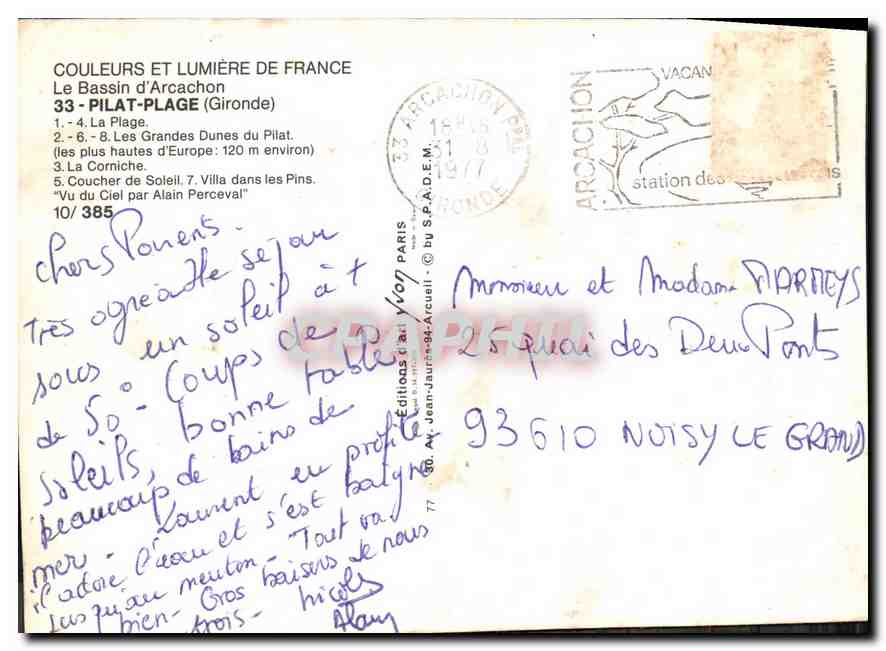 COULEURS ET LUMIÈRE DE FRANCE
Le Bassin d'Arcachon
33 - PILAT-PLAGE (Gironde)
1. - 4. La Plage.
2. - 6. - 8. Les Grandes Dunes du Pilat.
(les plus hautes d'Europe : 120 m environ)
3. La Corniche.
5. Coucher de Soleil. 7. Villa dans les Pins.
"Vu du Ciel par Alain Perceval"
10/ 385
Chers Parents.
Très agréable séjour
sous un soleil à +
de 50° - Coups de
Soleils, bonne table
beaucoup de bains de
mer - Laurent en profite
il adore l'eau et s'est baigné
jusqu'au menton - Tout va
bien - Gros baisers de nous
trois - Nicole
Alain
33 ARCACHON PPAL
18H
31 - 8
1977
GIRONDE
ARCACHON
VACAN
station des
Editions d'art Yvon PARIS
30. Av. Jean-Jaurès-94-Arcueil - © by S.P.A.D.E.M.
77
Monsieur et Madame MARMEYS
25 quai des Deux Ponts
93610 NOISY LE GRAND